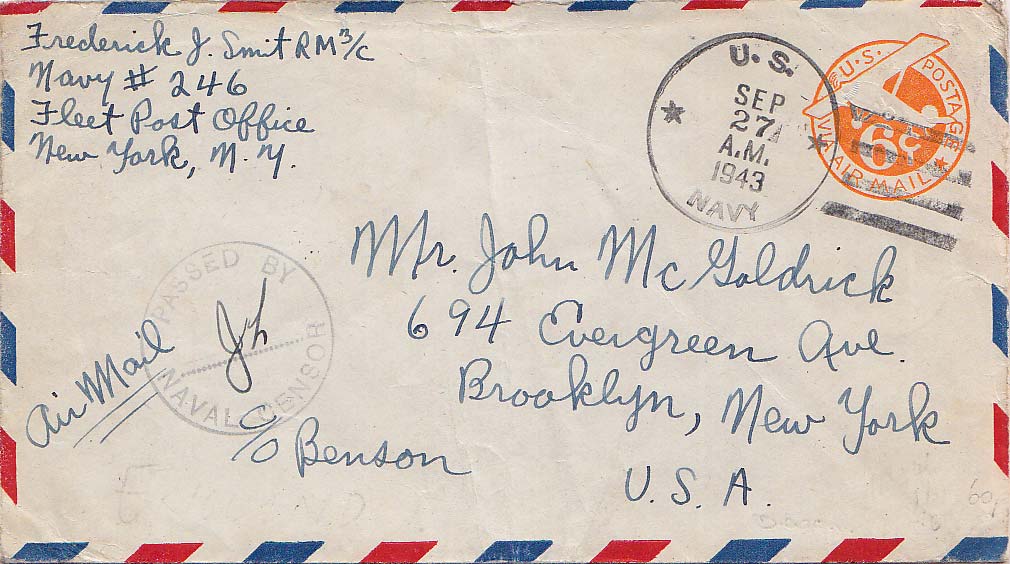 Frederick J. Smit RM 3/c
Navy # 246
Fleet Post Office
New York, N.Y.
U.S.
SEP
27
A.M.
1943
NAVY
U.S. POSTAGE
6¢
VIA AIR MAIL
Mr. John McGoldrick
694 Evergreen Ave.
Brooklyn, New York
U.S.A.
PASSED BY
Jh
NAVAL CENSOR
Air Mail
c/o Benson